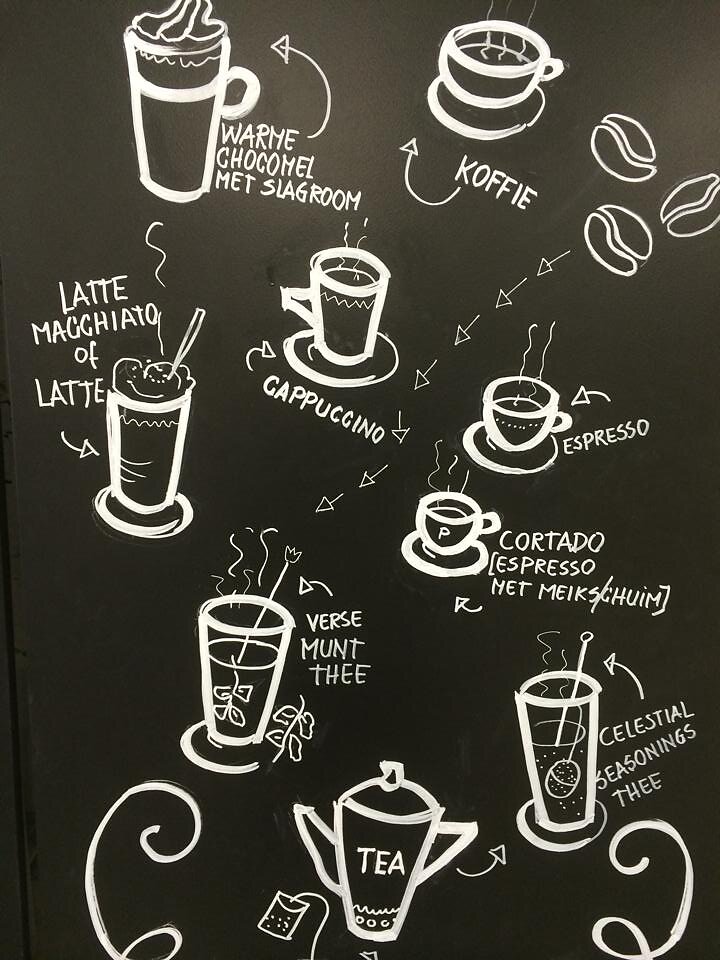 WARME
CHOCOMEL
MET SLAGROOM
KOFFIE
LATTE
MACCHIATO
of
LATTE
CAPPUCCINO
ESPRESSO
P
CORTADO
[ESPRESSO
MET MELKSCHUIM]
VERSE
MUNT
THEE
CELESTIAL
SEASONINGS
THEE
TEA